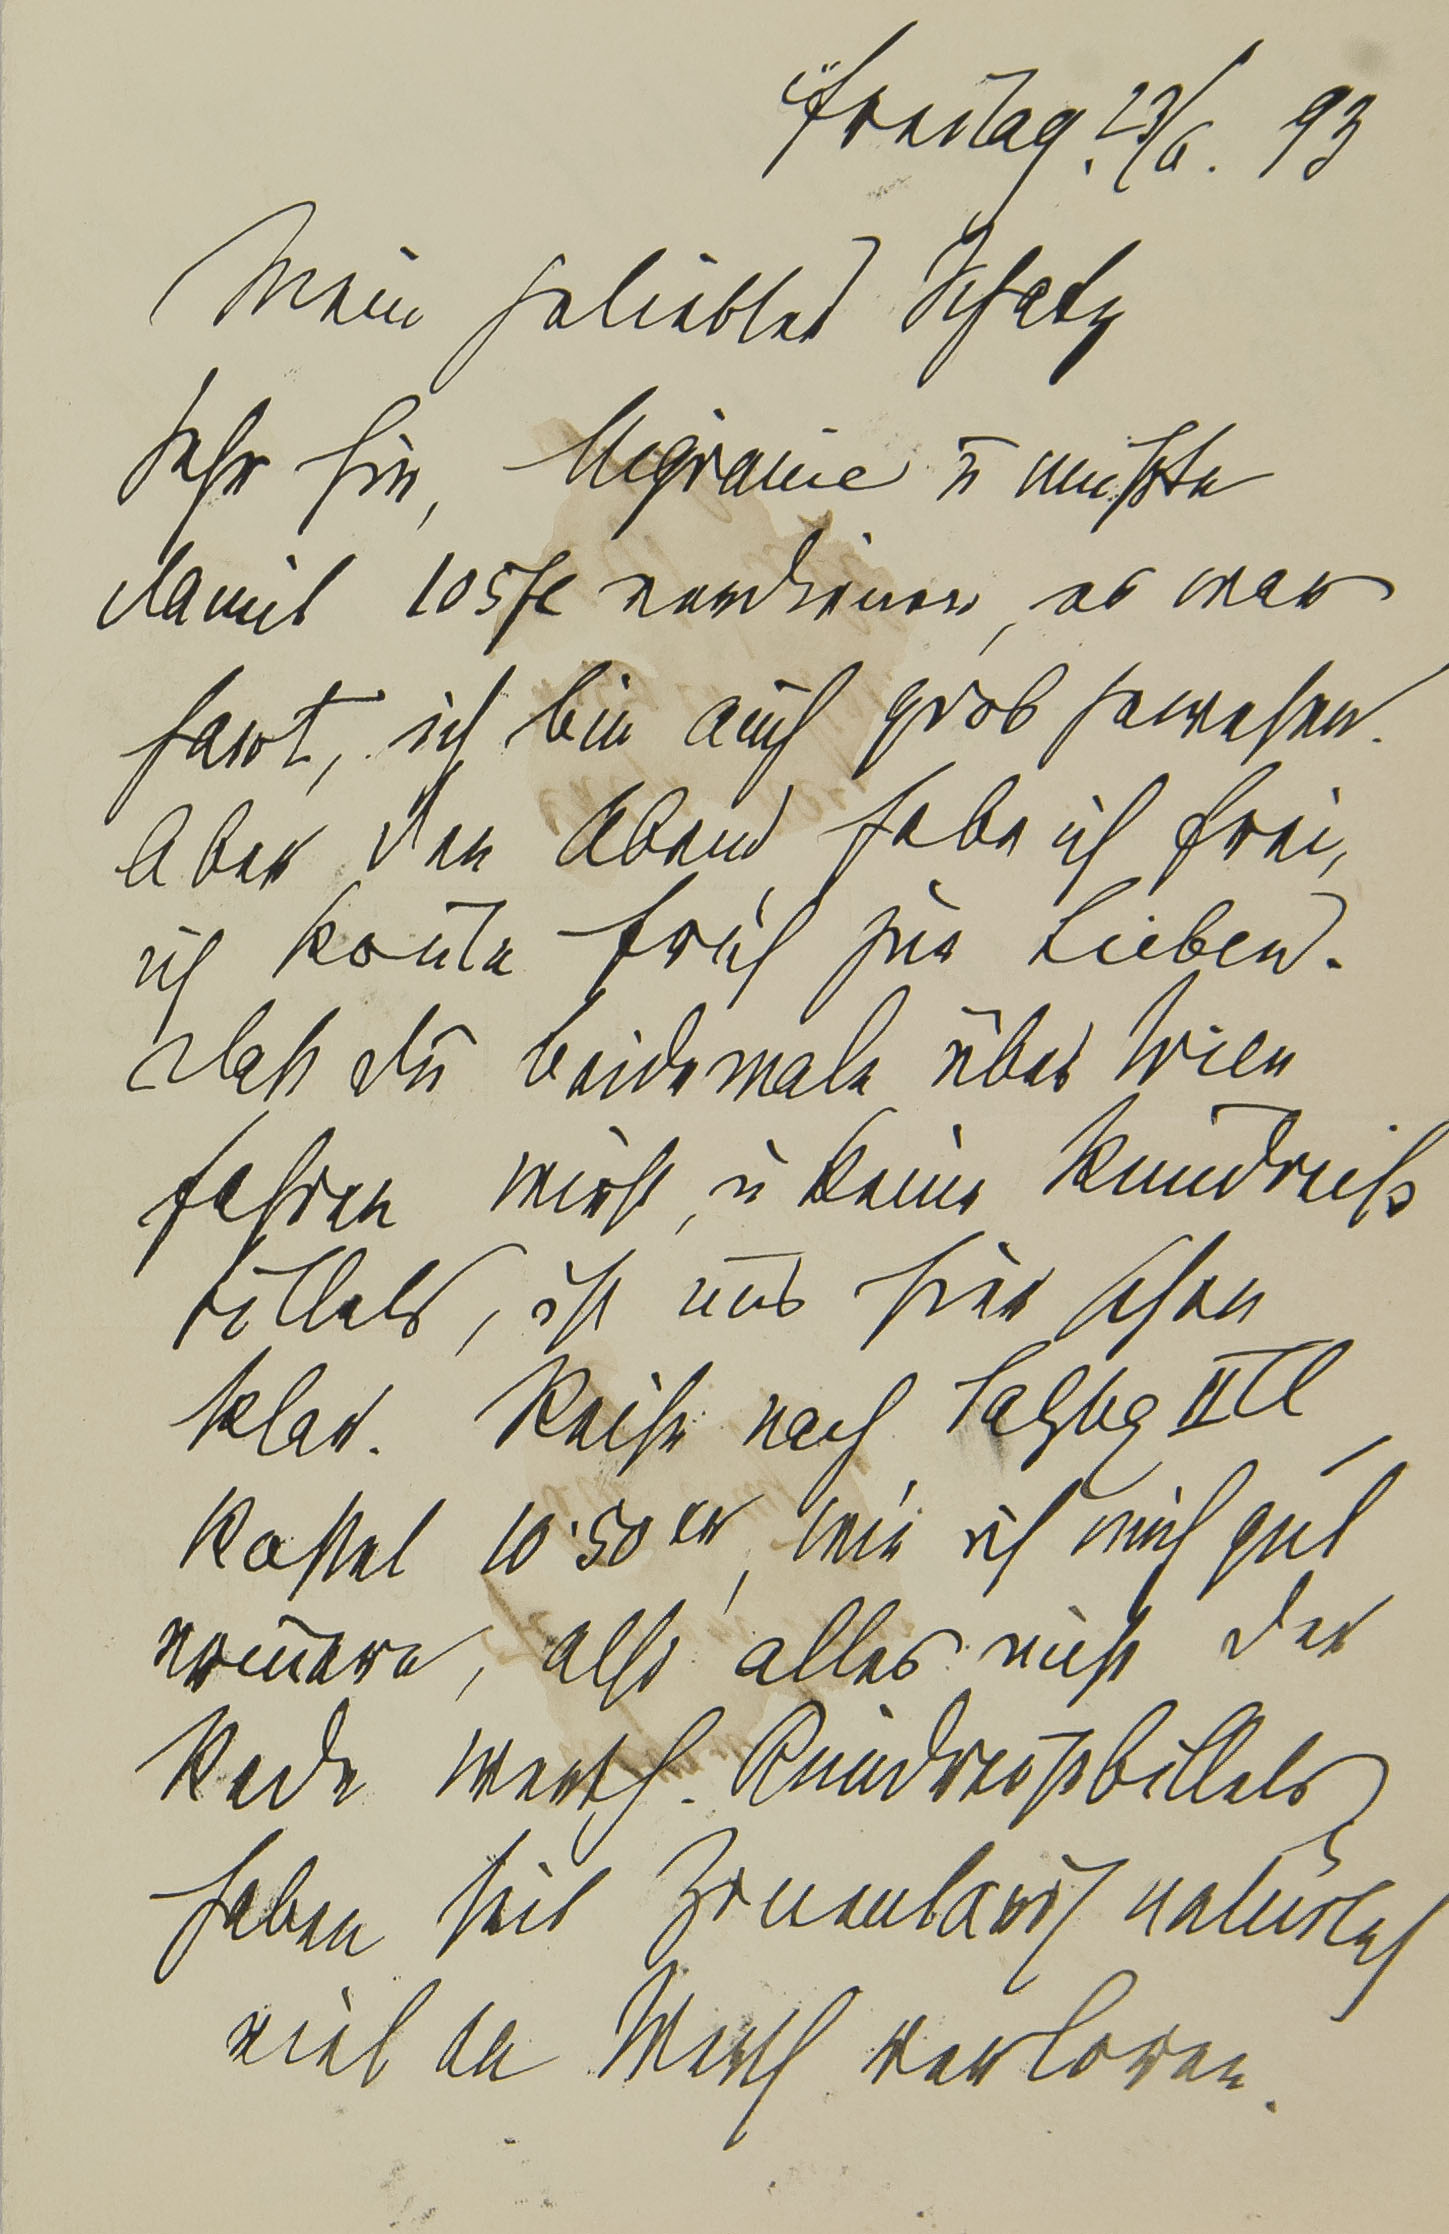 Freitag. 23/6. 93
Mein geliebter Schatz
Sehr hin, Migraine u mußte
damit 105 fl verdienen, es war
hart, ich bin auch grob gewesen.
Aber den Abend habe ich frei,
ich konnte früh zur Lieben.
Daß du beidemale über Wien
fahren mußt, u keine Rundreiß
billets, ist uns hier schon
klar. Reise nach Salzbg II Cl
kostet 10·50 xr, wie ich mich gut
erinnere, also alles nicht der
Rede werth. Rundreisebillets
haben seit Zonentarif natürlich
viel an Werth verloren.